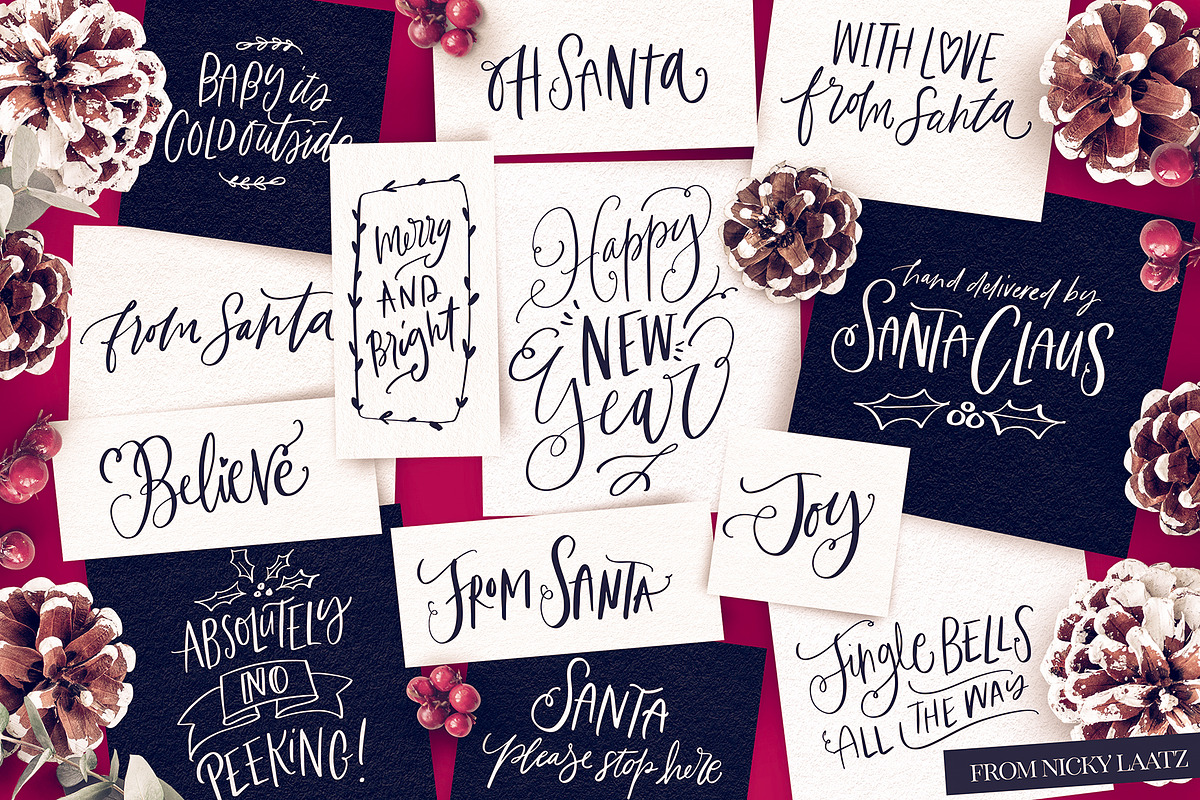 BABY its
COLD outside
OH SANTA
WITH LOVE
from Santa
from Santa
merry
AND
Bright
Happy
NEW
Year
hand delivered by
SANTA CLAUS
Believe
FROM SANTA
Joy
ABSOLUTELY
NO
PEEKING!
SANTA
please stop here
Jingle BELLS
ALL THE WAY
FROM NICKY LAATZ